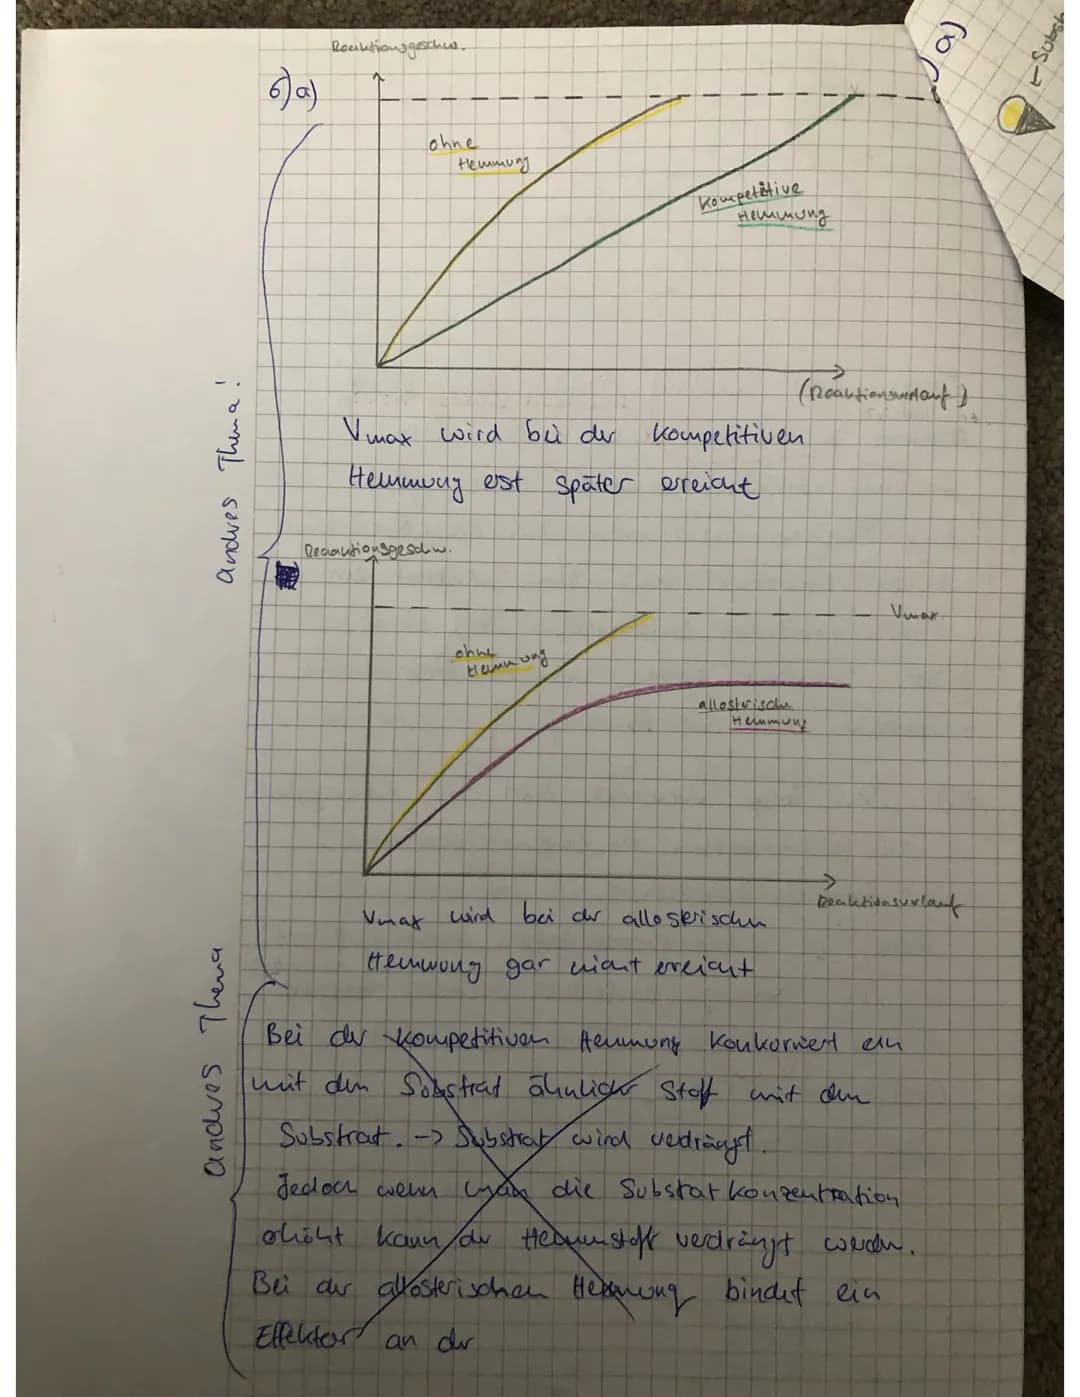 Reaktionsgeschw.
6) a)
ohne
Hemmung
Kompetitive
Hemmung
(Reaktionsverlauf)
Vmax wird bei der Kompetitiven
Hemmung erst später erreicht
andres Thema!
Reaktionsgeschw.
Vmax
ohne
Hemmung
allosterische
Hemmung
Reaktionsverlauf
Vmax wird bei der allosterischen
Hemmung gar nicht erreicht
andres Thema
Bei der Kompetitiven Hemmung konkurriert ein
mit dem Substrat ähnlicher Stoff mit dem
Substrat. -> Substrat wird verdrängt.
Jedoch wenn man die Substratkonzentration
erhöht kann der Hemmstoff verdrängt werden.
Bei der allosterischen Hemmung bindet ein
Effektor an der
a)
← Subst